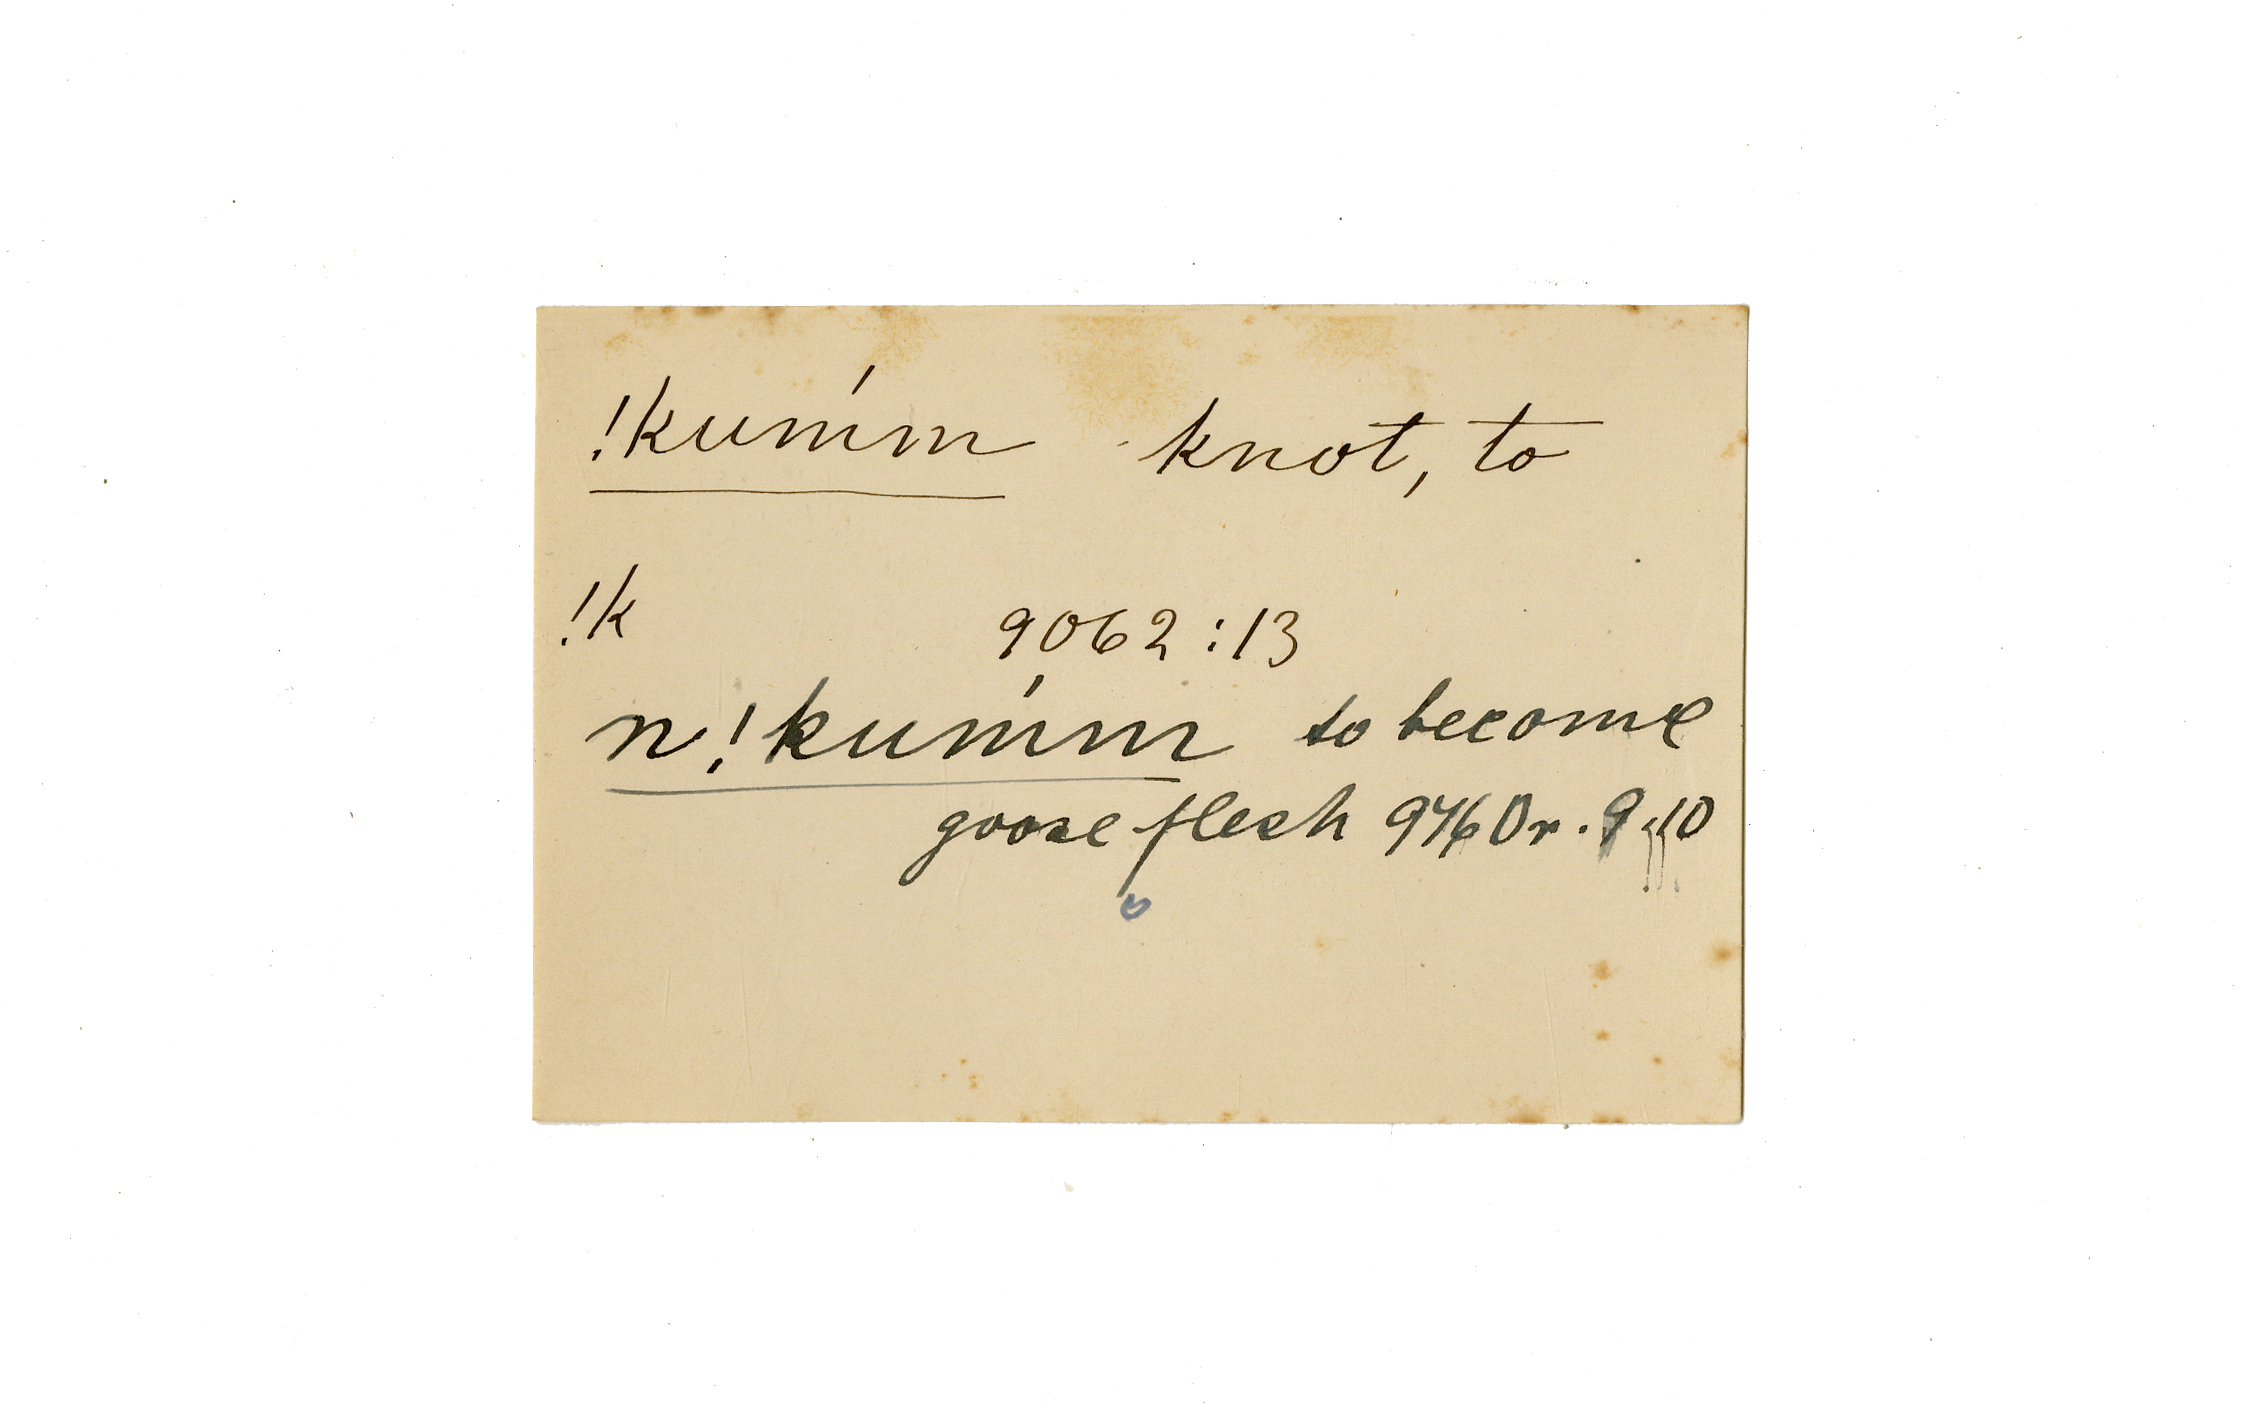 !kum'm knot, to
!k 9062:13
n!kum'm to become
goose flesh 9460 r. 9,10